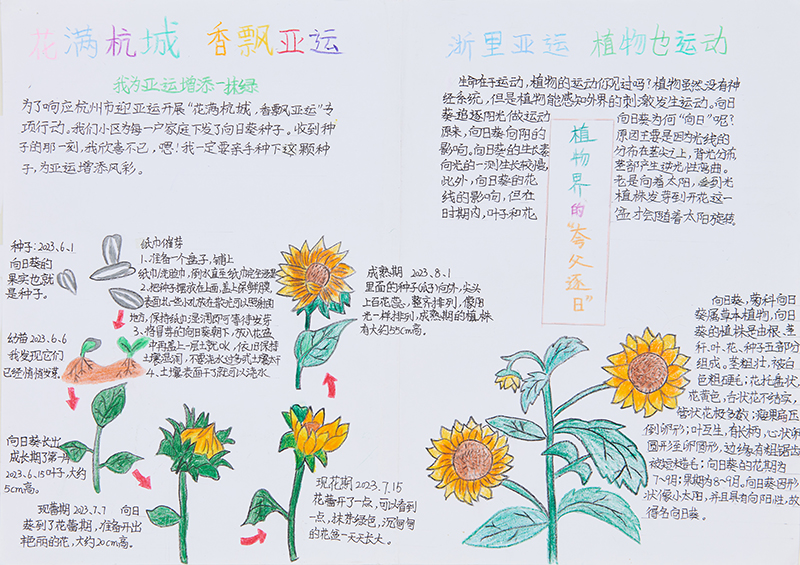 花满杭城 香飘亚运
我为亚运增添一抹绿
为了响应杭州市迎亚运开展“花满杭城,香飘亚运”专
项行动。我们小区为每一户家庭下发了向日葵种子。收到种
子的那一刻,我欣喜不已,嗯!我一定要亲手种下这颗种
子,为亚运增添风彩。
种子:2023.6.1
向日葵的
果实也就
是种子。
纸巾催芽
1.准备一个盘子,铺上
2.把种子摆放在上面,盖上保鲜膜
地方,保持纸巾湿润即可等待发芽
3、将冒芽的向日葵朝下,放入花盆
中再盖上一层土就OK,依旧保持
4、土壤表面干了就可以浇水
幼苗 2023.6.6
我发现它们
已经悄悄发芽
向日葵长出
成长期了第一片
2023.6.15叶子,大约
5cm高。
现蕾期 2023.7.7 向日
葵到了花蕾期,准备开出
艳丽的花,大约20cm高。
现花期 2023.7.15
花蕾开了一点,可以看到
一点,抹芽绿色,沉甸甸
的花盘一天天长大。
成熟期 2023.8.1
里面的种子成了向外,尖头
上百花恋,整齐排列,像阳
光一样排列,成熟期的植株
有大约55cm高。
浙里亚运 植物也运动
生命在于运动,植物的运动你见过吗?植物虽然没有神
经系统,但是植物能感知外界的刺激发生运动。向日
葵追逐阳光做运动 向日葵为何“向日”呢?
原来,向日葵向阳的 原因主要是因为光线的
影响。向日葵的生长素 分布在茎尖上,背光分布
向光的一侧生长较慢, 茎部产生逆光性弯曲。
此外,向日葵的花 老是向着太阳,受到光
线的影响,但在 植株发芽到开花这一
时期内,叶子和花 盘才会随着太阳旋转
植物界的“夸父逐日”
向日葵,菊科向日
葵属草本植物,向日
葵的植株是由根、茎
秆、叶、花、种子五部分
组成。茎粗壮,被白
色粗硬毛;花托盘状,
花黄色,舌状花不结实,
管状花极多数;瘦果扁压
倒卵形;叶互生,有长柄,心状卵
圆形至卵圆形,边缘有粗锯齿
被短糙毛;向日葵的花期为
7~9月;果期为8~9月。向日葵圆形
状像小太阳,并且具有向阳性,故
得名向日葵。